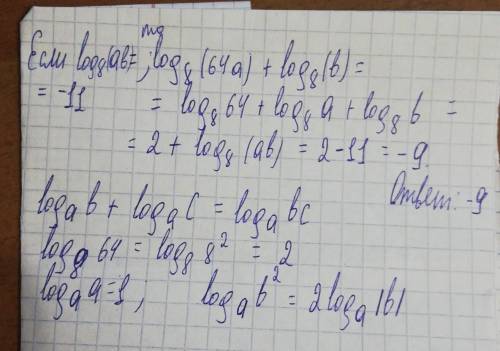 то
Если log₈(ab)= ; log₈(64a) + log₈(b) =
= -11 = log₈64 + log₈a + log₈b =
= 2 + log₈(ab) = 2-11 = -9.
Ответ: -9
logₐb + logₐc = logₐbc
log₈64 = log₈8² = 2
logₐa=1; logₐb² = 2logₐ|b|